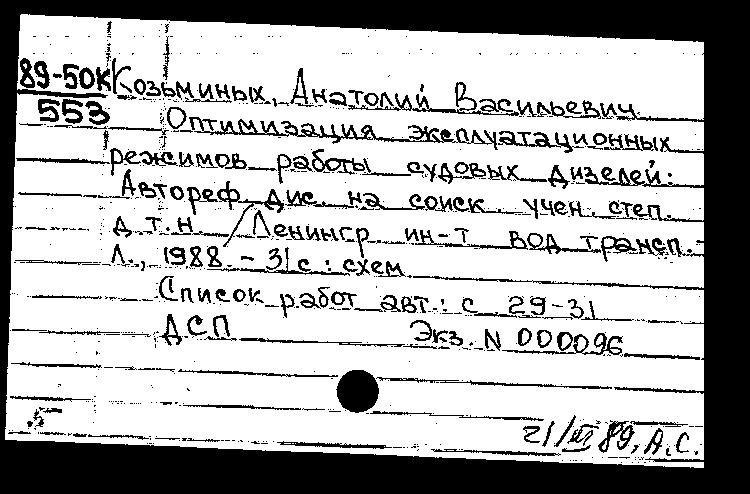 89-50К Козьминых, Анатолий Васильевич
553 Оптимизация эксплуатационных
режимов работы судовых дизелей:
Автореф. дис. на соиск. учен. степ.
д.т.н. / Ленингр. ин-т вод. трансп. -
Л., 1988. - 31 с.: схем
Список работ авт.: с. 29-31
ДСП Экз. N 000096
5
21/ 89, А.С.